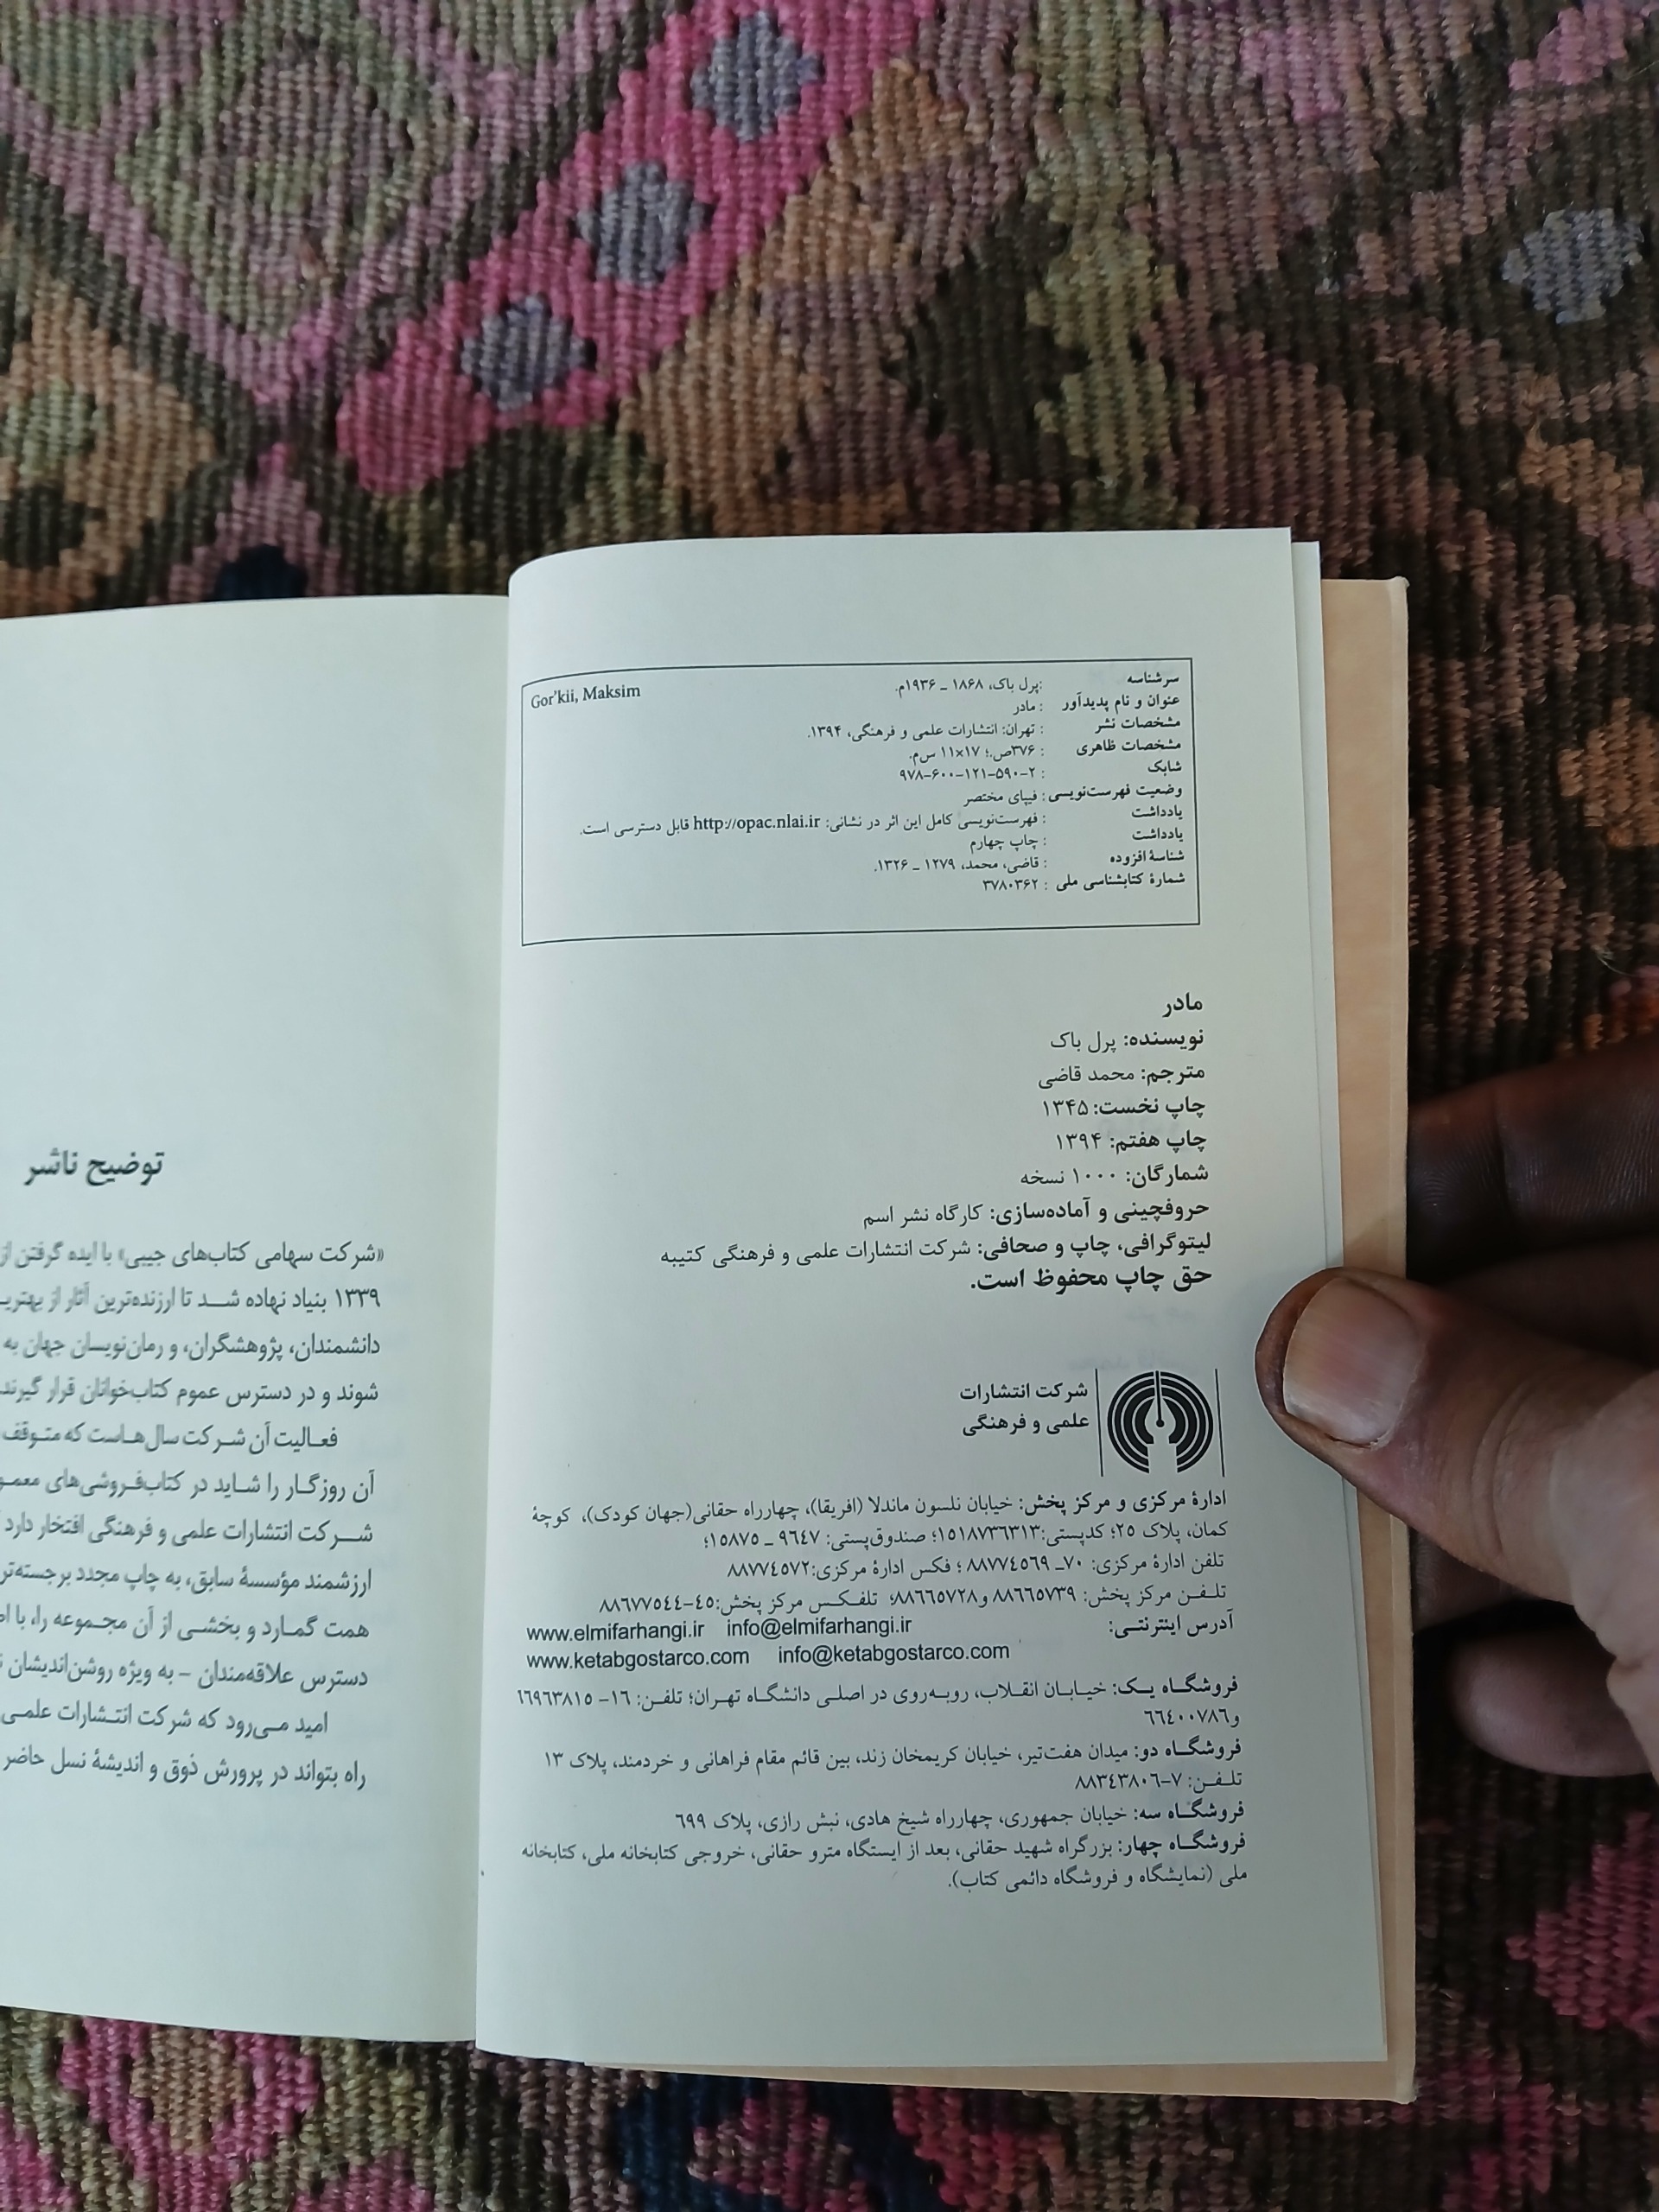 سرشناسه :پرل باک، ۱۸۶۸ ـ ۱۹۳۶م. Gor'kii, Maksim
عنوان و نام پدیدآور : مادر
مشخصات نشر : تهران: انتشارات علمی و فرهنگی، ۱۳۹۴.
مشخصات ظاهری : ۳۷۶ص.؛ ۱۷×۱۱ س‌م.
شابک : ۹۷۸-۶۰۰-۱۲۱-۵۹۰-۲
وضعیت فهرست‌نویسی : فیپای مختصر
یادداشت : فهرست‌نویسی کامل این اثر در نشانی: http://opac.nlai.ir قابل دسترسی است.
یادداشت : چاپ چهارم
شناسهٔ افزوده : قاضی، محمد، ۱۲۷۹ ـ ۱۳۲۶.
شمارهٔ کتابشناسی ملی : ۳۷۸۰۳۶۲
مادر
نویسنده: پرل باک
مترجم: محمد قاضی
چاپ نخست: ۱۳۴۵
چاپ هفتم: ۱۳۹۴
شمارگان: ۱۰۰۰ نسخه
حروفچینی و آماده‌سازی: کارگاه نشر اسم
لیتوگرافی، چاپ و صحافی: شرکت انتشارات علمی و فرهنگی کتیبه
حق چاپ محفوظ است.
شرکت انتشارات
علمی و فرهنگی
ادارهٔ مرکزی و مرکز پخش: خیابان نلسون ماندلا (افریقا)، چهارراه حقانی(جهان کودک)، کوچهٔ
کمان، پلاک ٢٥؛ کدپستی:١٥١٨٧٣٦٣١٣؛ صندوق‌پستی: ٩٦٤٧ ـ ١٥٨٧٥؛
تلفن ادارهٔ مرکزی: ٧٠ـ ٨٨٧٧٤٥٦٩ ؛ فکس ادارهٔ مرکزی:٨٨٧٧٤٥٧٢
تلـفـن مرکز پخش: ٨٨٦٦٥٧٣٩ و٨٨٦٦٥٧٢٨؛ تلفـکـس مرکز پخش:٤٥-٨٨٦٧٧٥٤٤
آدرس اینترنتـی: www.elmifarhangi.ir info@elmifarhangi.ir
www.ketabgostarco.com info@ketabgostarco.com
فروشگـاه یـک: خیـابـان انقـلاب، روبـه‌روی در اصلـی دانشـگاه تهـران؛ تلفـن: ١٦- ٦٦٩٦٣٨١٥
و٦٦٤٠٠٧٨٦
فروشگـاه دو: میدان هفت‌تیر، خیابان کریمخان زند، بین قائم مقام فراهانی و خردمند، پلاک ١٣
تلـفـن: ٧-٨٨٣٤٣٨٠٦
فروشگـاه سه: خیابان جمهوری، چهارراه شیخ هادی، نبش رازی، پلاک ٦٩٩
فروشگـاه چهار: بزرگراه شهید حقانی، بعد از ایستگاه مترو حقانی، خروجی کتابخانه ملی، کتابخانه
ملی (نمایشگاه و فروشگاه دائمی کتاب).
توضیح ناشر
«شرکت سهامی کتاب‌های جیبی» با ایده گرفتن از
۱۳۳۹ بنیاد نهاده شـــد تا ارزنده‌ترین آثار از
دانشمندان، پژوهشگران، و رمان‌نویسان جهان به
شوند و در دسترس عموم کتاب‌خوانان قرار گیرند
فعـالیت آن شـرکت سال‌هـاست که متـوقف
آن روزگـار را شـاید در کتاب‌فـروشی‌های
شـــرکت انتشارات علمی و فرهنگی افتخار دارد
ارزشمند مؤسسهٔ سابق، به چاپ مجدد
همت گمـارد و بخشـی از آن مجـموعه را، با
دسترس علاقه‌مندان – به ویژه روشن‌اندیشان
امید مـی‌رود که شرکت انتـشارات علمـی
راه بتواند در پرورش ذوق و اندیشهٔ نسل حاضر